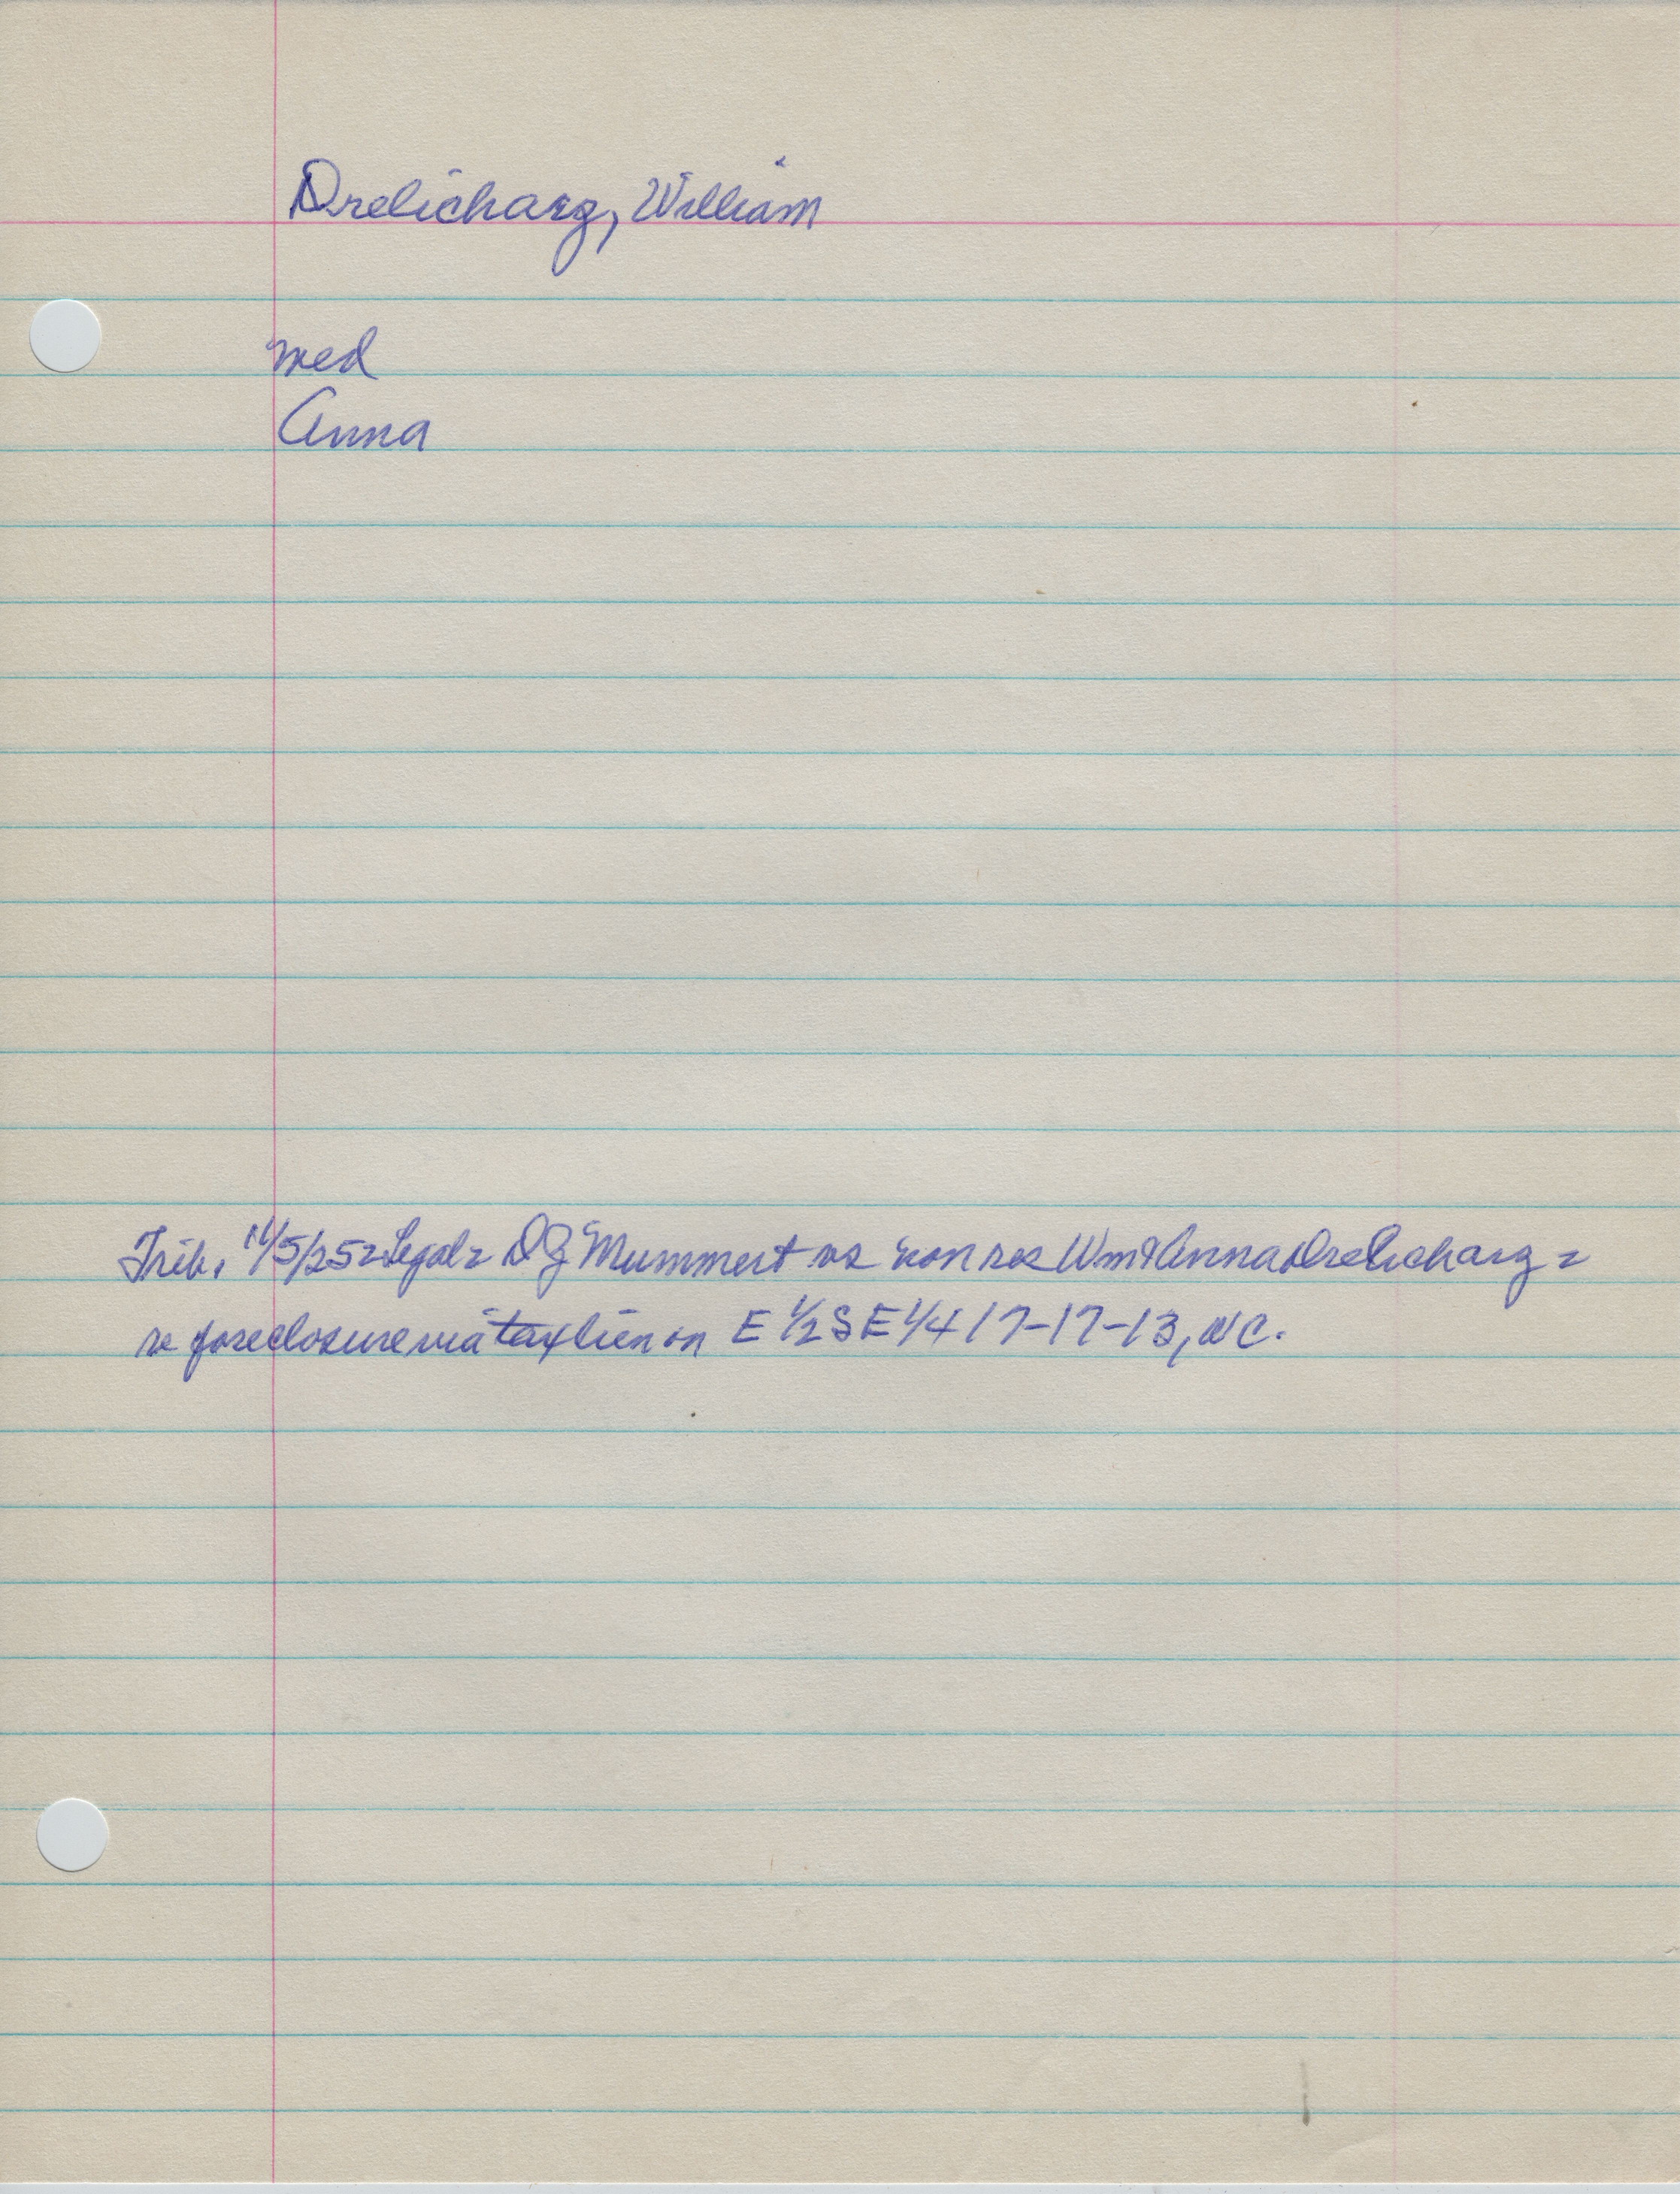 Drelicharz, William
med
Anna
Trib. 11/5/25=Legal= D J Mummert vs non res Wm & Anna Drelicharz =
re foreclosure via tax lien on E 1/2 SE 1/4 17-17-13, NC.